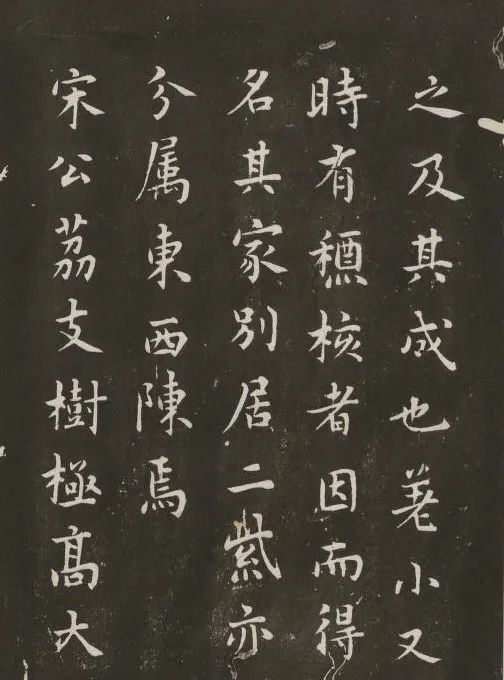 之及其成也差小又
時有核者因而得
名其家別居二紫亦
分属東西陳焉
宋公茘支樹極髙大